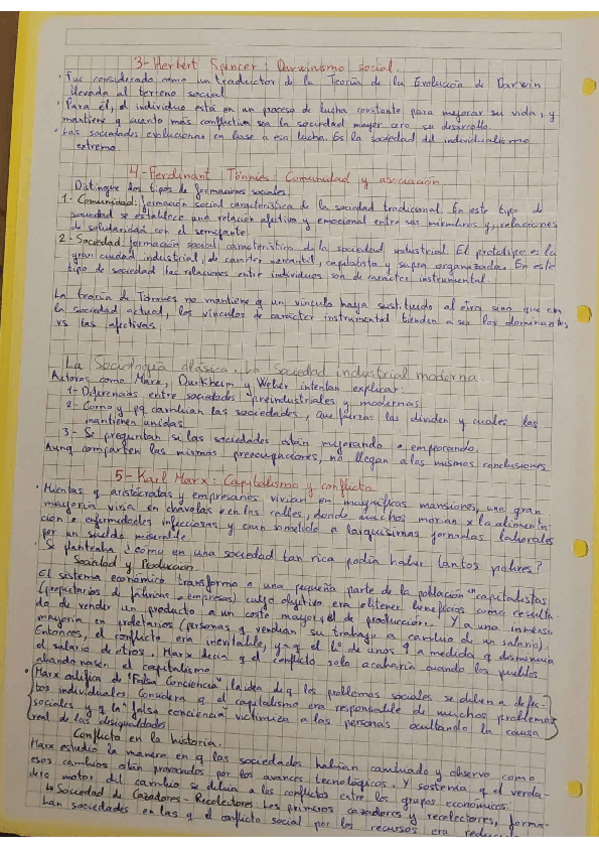 3- Herbert Spencer: Darwinismo social.
· Fue considerado como un traductor de la Teoría de la Evolución de Darwin
llevada al terreno social.
· Para él, el individuo está en un proceso de lucha constante para mejorar su vida, y
mantiene q cuanto más conflictiva sea la sociedad mayor será su desarrollo.
· Las sociedades evolucionan en base a esa lucha. Es la sociedad del individualismo
extremo.
4- Ferdinant Tönnies: Comunidad y asociación
Distingue dos tipos de formaciones sociales.
1- Comunidad: formación social característica de la sociedad tradicional. En este tipo de
sociedad se establece una relación afectiva y emocional entre sus miembros y, relaciones
de solidaridad con el semejante.
2- Sociedad: formación social característica de la sociedad industrial. El prototipo es la
gran ciudad industrial, de carácter mercantil, capitalista y supra organizada. En este
tipo de sociedad las relaciones entre individuos son de carácter instrumental.
La teoría de Tönnies no mantiene q un vínculo haya sustituido al otro sino que en
la sociedad actual, los vínculos de carácter instrumental tienden a ser los dominantes
vs las afectivas.
La Sociología clásica. La Sociedad industrial moderna
Autores como Marx, Durkheim y Weber intentan explicar:
1- Diferencias entre sociedades preindustriales y modernas
2- Como y pq cambian las sociedades, que fuerzas las dividen y cuales las
mantienen unidas.
3- Se preguntan si las sociedades están mejorando o empeorando.
Aunq comparten las mismas preocupaciones, no llegan a las mismas conclusiones
5- Karl Marx: Capitalismo y conflicto
· Mientas q aristócratas y empresarios vivían en magníficas mansiones, una gran
mayoría vivía en chavolas o en las calles, donde muchos morían x la alimenta-
ción o enfermedades infecciosas y eran sometido a larquísimas jornadas laborales
por un sueldo miserable.
· Se planteaba ¿como en una sociedad tan rica podía haber tantos pobres?
Sociedad y Producción.
El sistema económico transformo a una pequeña parte de la población en capitalistas
(propietarios de fábricas o empresas) cuyo objetivo era obtener beneficios como resulta-
do de vender un producto a un coste mayor q el de producción. Y a una inmensa
mayoría en proletarios (personas q vendían su trabajo a cambio de un salario).
Entonces, el conflicto era inevitable, ya q el bº de unos ↑ a medida q disminuía
el salario de otros. Marx decía q el conflicto solo acabaría cuando los pueblos
abandonasen el capitalismo.
· Marx califica de "Falsa Conciencia", la idea de q los problemas sociales se deben a defec-
tos individuales. Considera q el capitalismo era responsable de muchos problemas
sociales y q la "falsa conciencia victimiza a las personas ocultando la causa
real de las desigualdades
Conflicto en la historia.
Marx estudió la manera en q las sociedades habían cambiado y observo como
esos cambios eran provocados por los avances tecnológicos. Y sostenía q el verda-
dero motor del cambio se debía a los conflictos entre los grupos económicos.
↳ Sociedad de Cazadores - Recolectores. Los primeros cazadores y recolectores, forma-
ban sociedades en las q el conflicto social por los recursos era